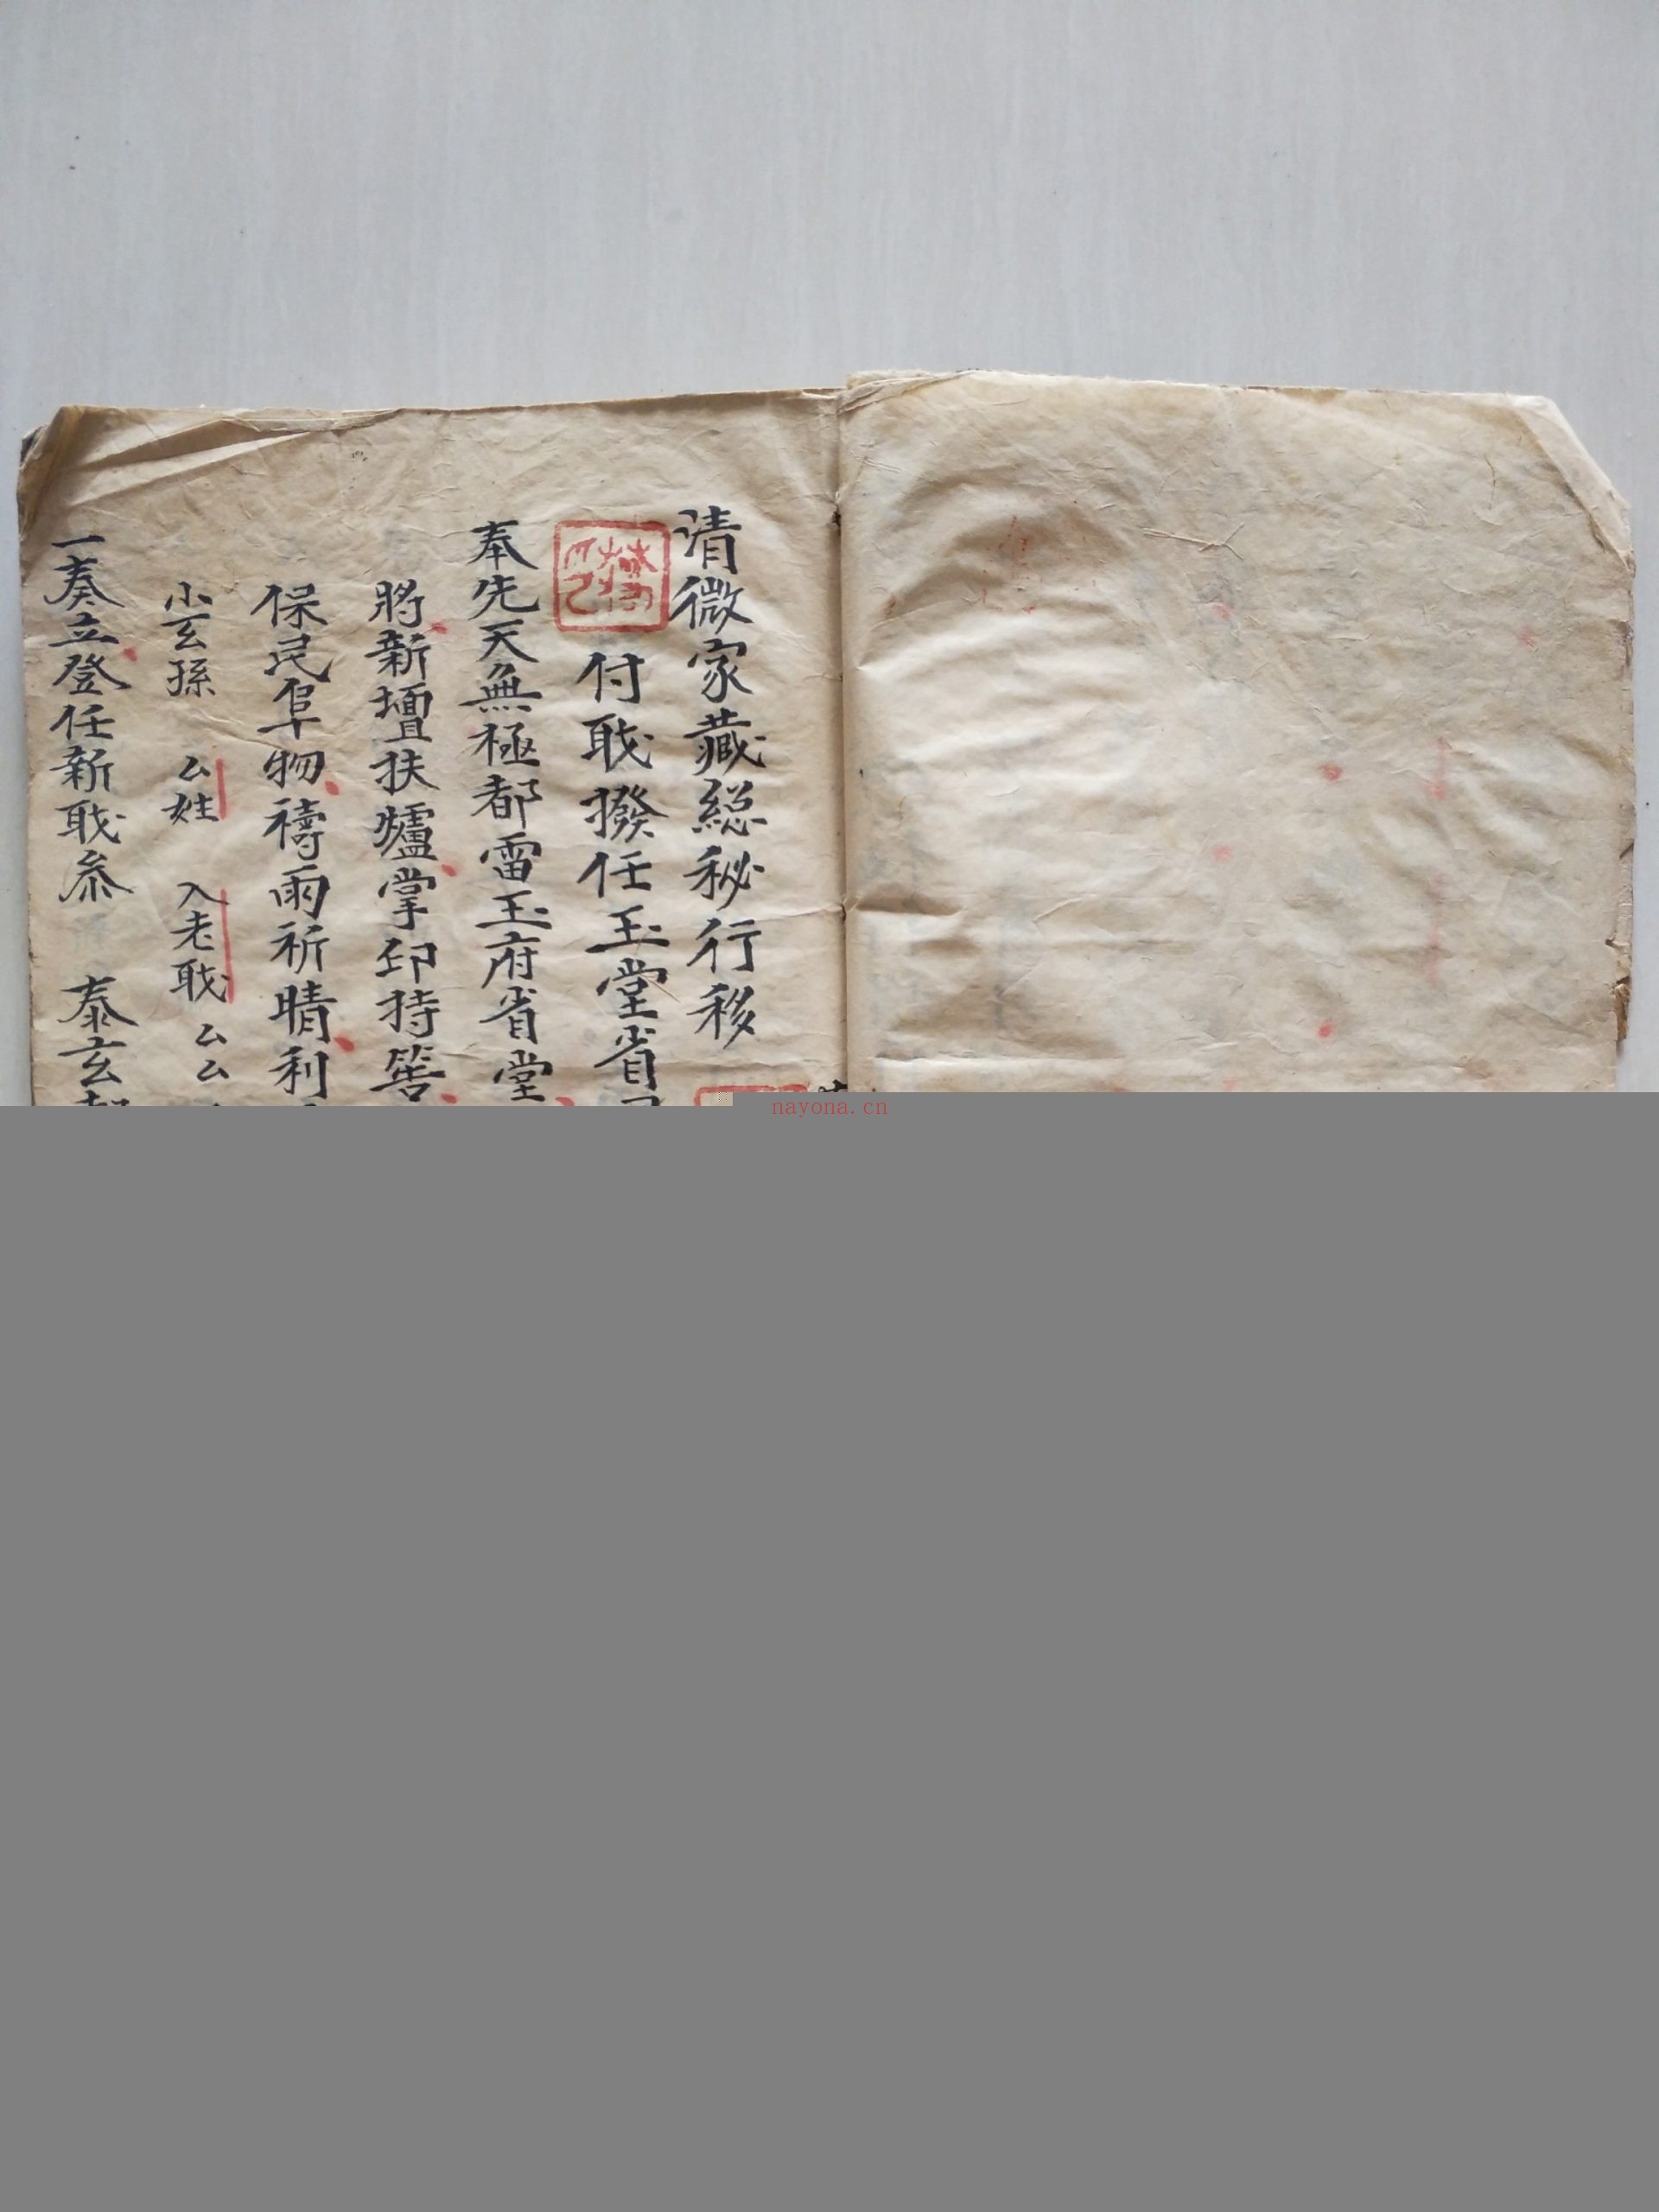 清微家藏総秘行移
付耺撥任玉堂省
奉先天無極都雷玉府省堂
將新壇扶爐掌印持
保民阜物禱雨祈晴利
小玄孫 厶姓 入老耺厶厶
一奏立登任新耺叅 泰玄
nayona.cn